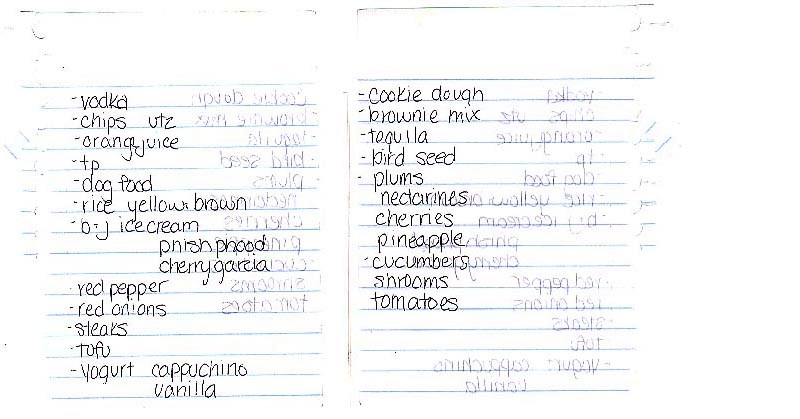 - vodka
- chips utz
- orange juice
- tp
- dog food
- rice yellow & brown
- b-j ice cream
phish phood
cherry garcia
- red pepper
- red onions
- steaks
- tofu
- yogurt cappuchino
vanilla
- cookie dough
- brownie mix
- taquila
- bird seed
- plums
nectarines
cherries
pineapple
- cucumbers
shrooms
tomatoes